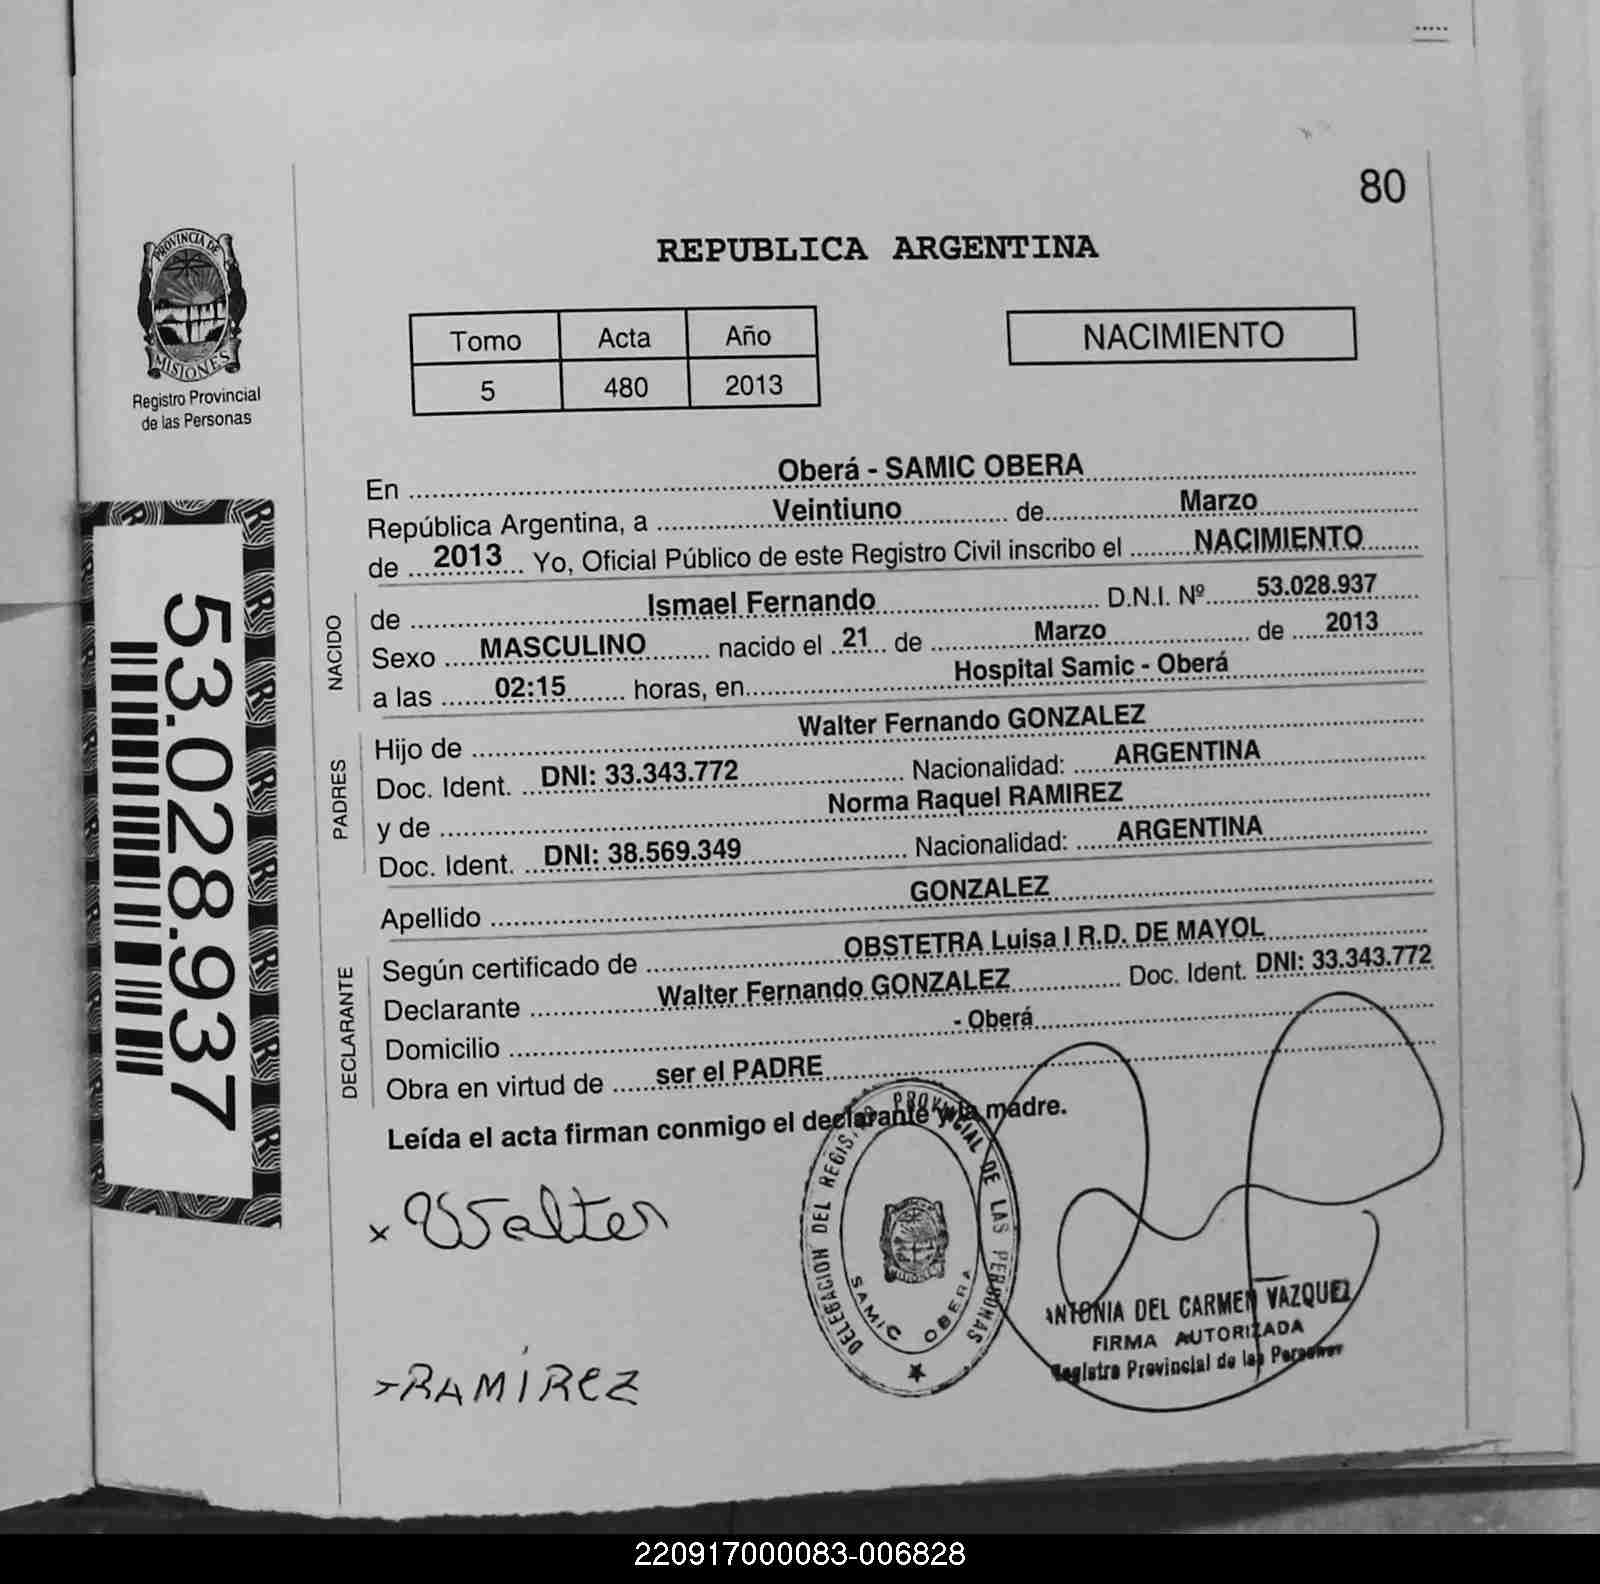 80
PROVINCIA DE
MISIONES
Registro Provincial
de las Personas
REPUBLICA ARGENTINA
Tomo Acta Año
5 480 2013
NACIMIENTO
53.028.937
En Oberá - SAMIC OBERA
República Argentina, a Veintiuno de Marzo
de 2013 Yo, Oficial Público de este Registro Civil inscribo el NACIMIENTO
NACIDO
de Ismael Fernando D.N.I. Nº 53.028.937
Sexo MASCULINO nacido el 21 de Marzo de 2013
a las 02:15 horas, en Hospital Samic - Oberá
PADRES
Hijo de Walter Fernando GONZALEZ
Doc. Ident. DNI: 33.343.772 Nacionalidad: ARGENTINA
y de Norma Raquel RAMIREZ
Doc. Ident. DNI: 38.569.349 Nacionalidad: ARGENTINA
Apellido GONZALEZ
DECLARANTE
Según certificado de OBSTETRA Luisa I R.D. DE MAYOL
Declarante Walter Fernando GONZALEZ Doc. Ident. DNI: 33.343.772
Domicilio - Oberá
Obra en virtud de ser el PADRE
Leída el acta firman conmigo el declarante y la madre.
x Walter
RAMÍREZ
DELEGACION DEL REGISTRO PROVINCIAL DE LAS PERSONAS
SAMIC OBERA
ANTONIA DEL CARMEN VAZQUEZ
FIRMA AUTORIZADA
Registro Provincial de las Personas
220917000083-006828